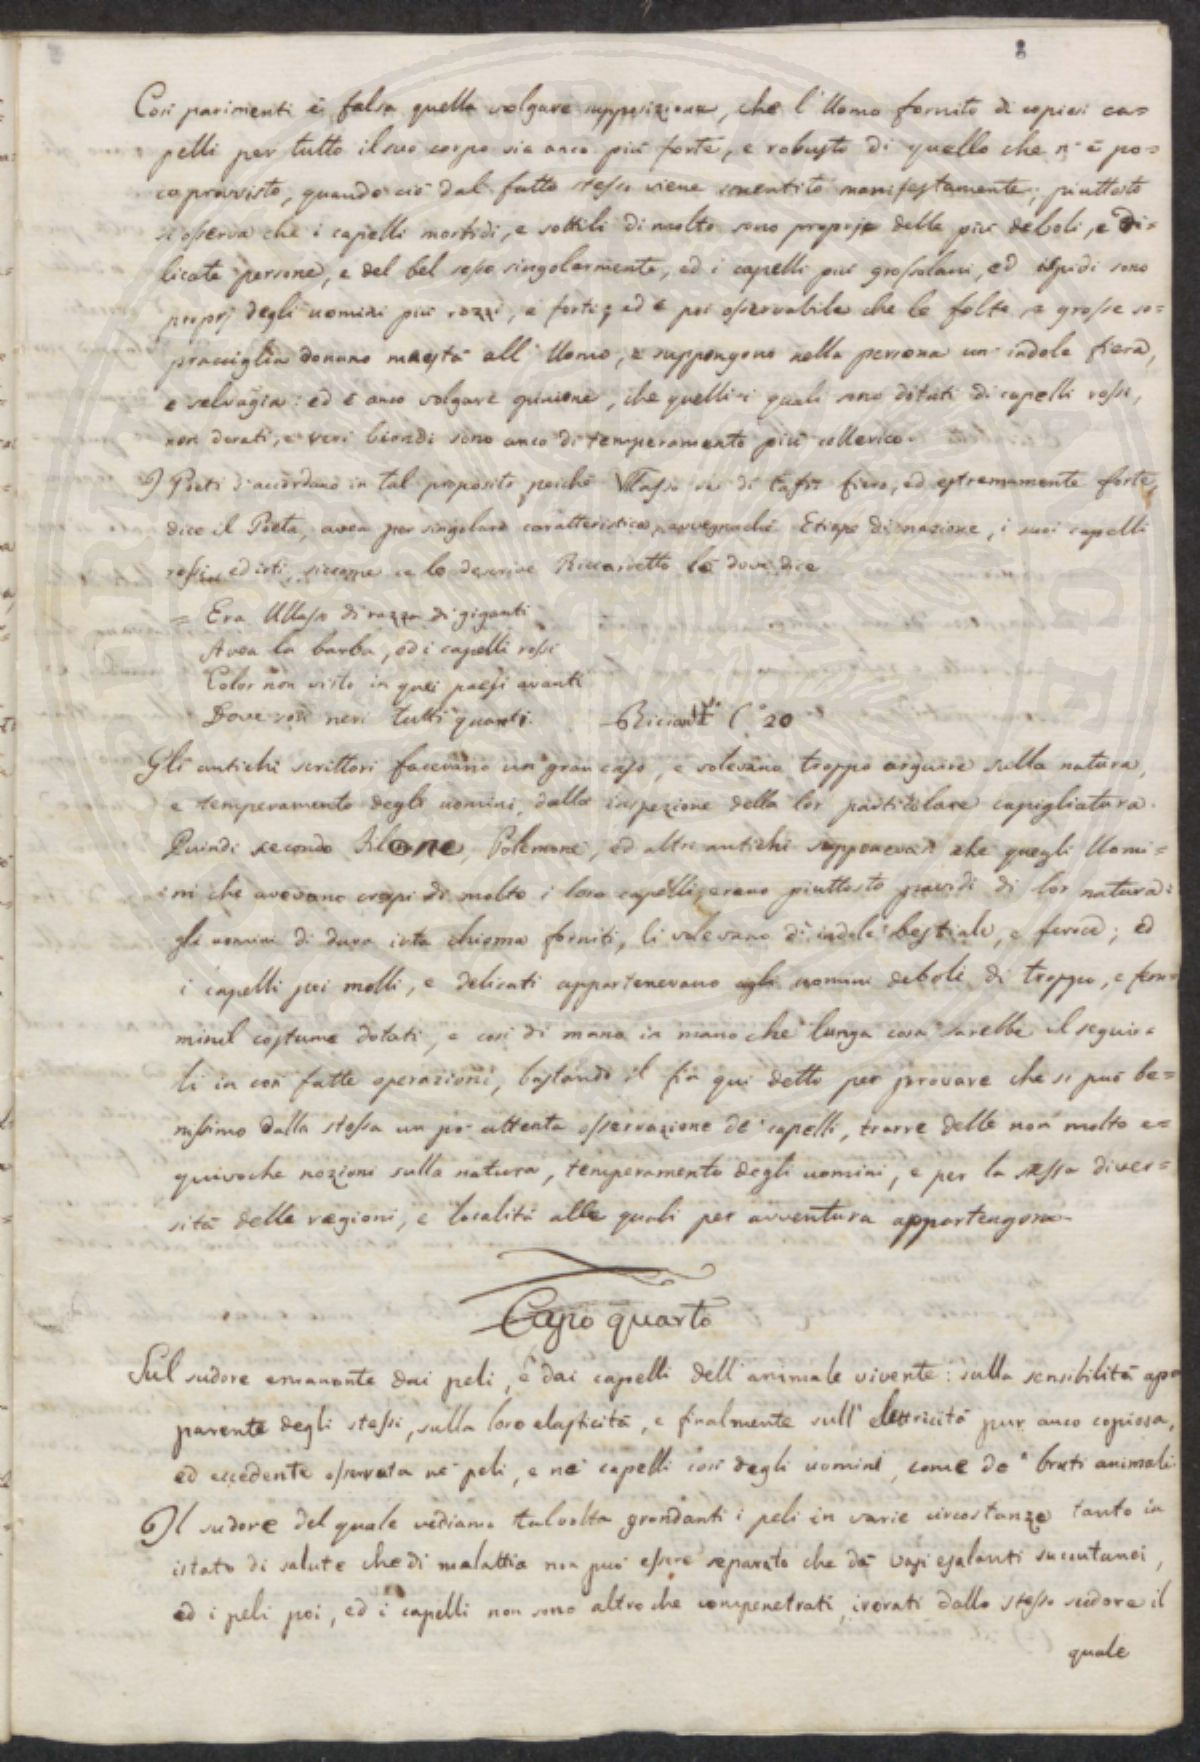 8
Così parimenti è falsa quella volgare supposizione, che l'Uomo fornito di copiosi ca=
pelli per tutto il suo corpo sia anco più forte, e robusto di quello che n'è po=
co provvisto, quando ciò dal fatto stesso viene smentito manifestamente; piuttosto
si osserva che i capelli morbidi, e sottili di molto sono proprj delle più deboli, e di=
licate persone, e del bel sesso singolarmente, ed i capelli più grossolani, ed ispidi sono
proprj degli uomini più rozzi, e forti; ed è poi osservabile che le folte, e grosse so=
pracciglia donano maestà all'Uomo, e suppongono nella persona un'indole fiera,
e selvagia: ed è anco volgare opinione, che quelli i quali sono dotati di capelli rossi,
non dorati, e veri biondi sono anco di temperamento più collerico.
I Poeti s'accordano in tal proposito poichè Ullasso fiero, ed estremamente forte,
dice il Poeta, avea per singolare caratteristica, avvegnachè Etiope di nazione, i suoi capelli
rossi, ed irti, siccome ce lo descrive Ricciardetto là dove dice
= Era Ullasso di razza di giganti
Avea la barba, ed i capelli rossi
Color non visto in quei paesi avanti
Dove son neri tutti quanti. Ricciard.to C.o 20
Gli antichi scrittori facevano un gran caso, e volevano troppo arguire sulla natura,
e temperamento degli uomini, dalla inspezione della lor particolare capigliatura.
Quindi secondo Polemone, ed altri antichi supponevasi che quegli Uomi=
ni che avevano crespi di molto i loro capelli, erano piuttosto pavidi di lor natura:
gli uomini di dura irta chioma forniti, li volevano di indole bestiale, e feroce; ed
i capelli poi molli, e delicati appartenevano agli uomini deboli di troppo, e fem=
minil costume dotati, e così di mano in mano che lunga cosa sarebbe il seguir=
li in così fatte operazioni, bastando il fin qui detto per provare che si può be=
nissimo dalla stessa un pò attenta osservazione de' capelli, trarre delle non molto e=
quivoche nozioni sulla natura, temperamento degli uomini, e per la stessa diver=
sità delle regioni, e località alle quali per avventura appartengono.
Capo quarto
Sul sudore emanante dai peli, e dai capelli dell'animale vivente: sulla sensibilità ap=
parente degli stessi, sulla loro elasticità, e finalmente sull'elettricità pur anco copiosa,
ed eccedente osservata ne' peli, e ne' capelli così degli uomini, come de' bruti animali.
Il sudore del quale vediamo talvolta grondanti i peli in varie circostanze tanto in
istato di salute che di malattia non può essere separato che da vasi esalanti succutanei,
ed i peli poi, ed i capelli non sono altro che compenetrati, irorati dallo stesso sudore il
quale